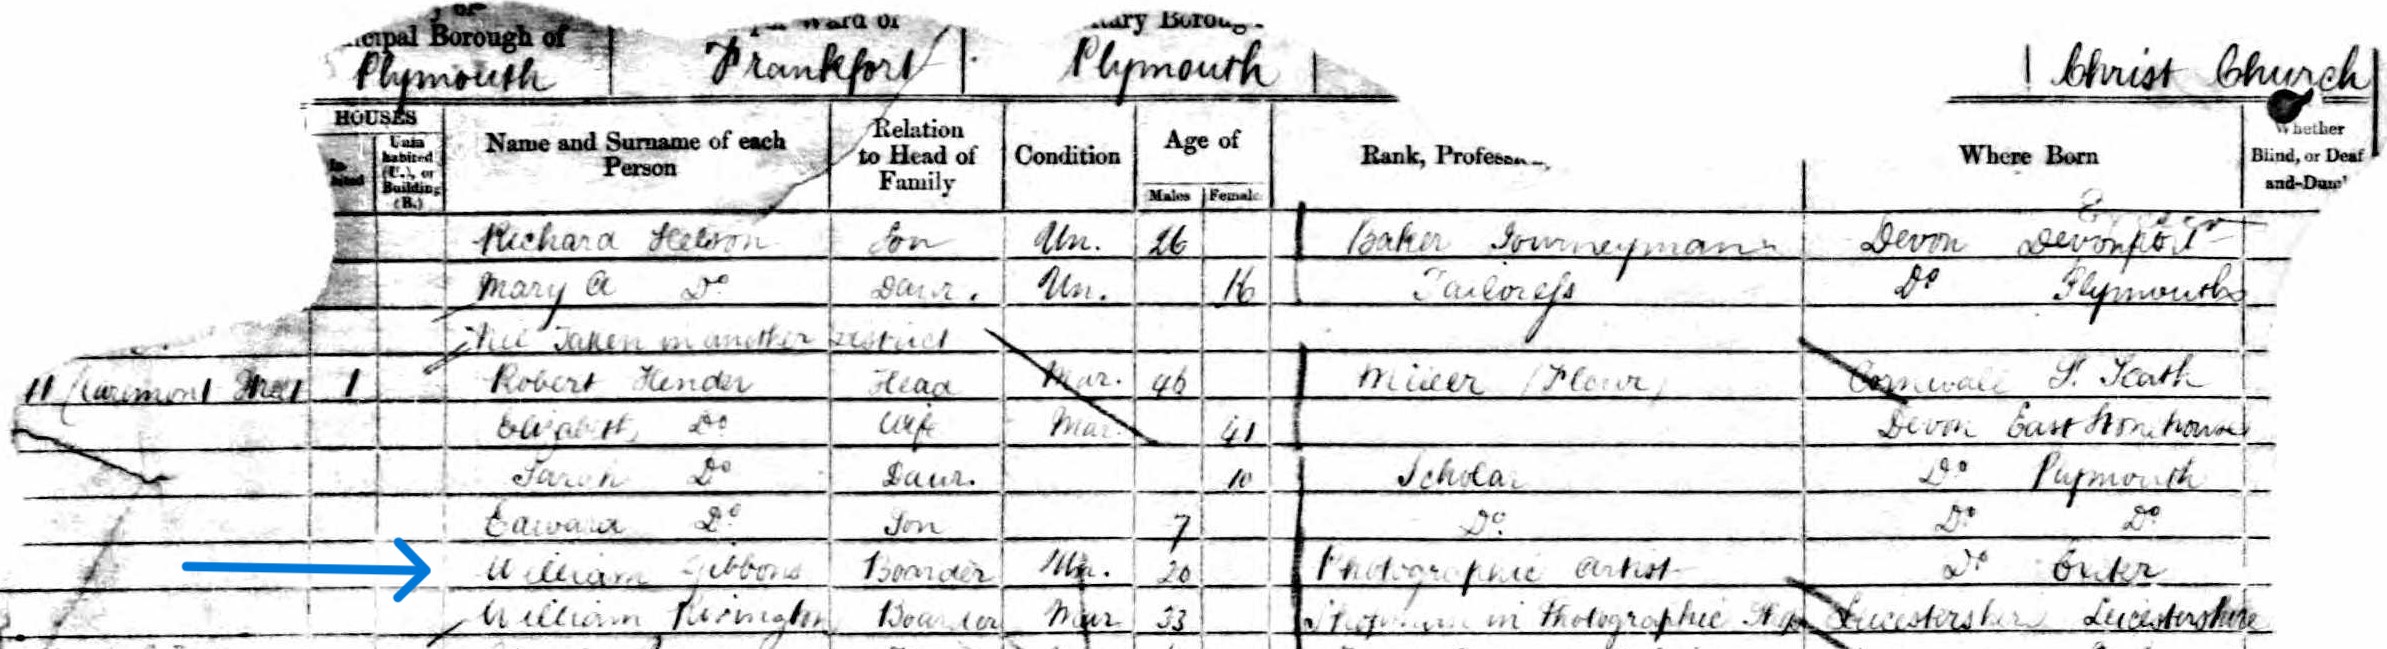 cipal Borough of
Plymouth
Ward of
Frankfort
Plymouth
Christ Church
HOUSES
habited (U.), or Building (B.)
Name and Surname of each Person
Relation to Head of Family
Condition
Age of
Males Female
Rank, Profess
Where Born
Whether Blind, or Deaf and-Dum
Richard Helson Son Un. 26 Baker Journeyman Devon Devonport
Mary A Do Daur. Un. 16 Tailoress Do Plymouth
Taken in another District
11 Claremont Street 1 Robert Hender Head Mar. 46 Miller (Flour) Cornwall St. Teath
Elizabeth Do Wife Mar. 41 Devon East Stonehouse
Sarah Do Daur. 10 Scholar Do Plymouth
Edward Do Son 7 Do Do Do
William Gibbons Boarder Un. 20 Photographic Artist Do Exeter
William Rivington Boarder Mar 33 in Photographic Leicestershire Leicestershire